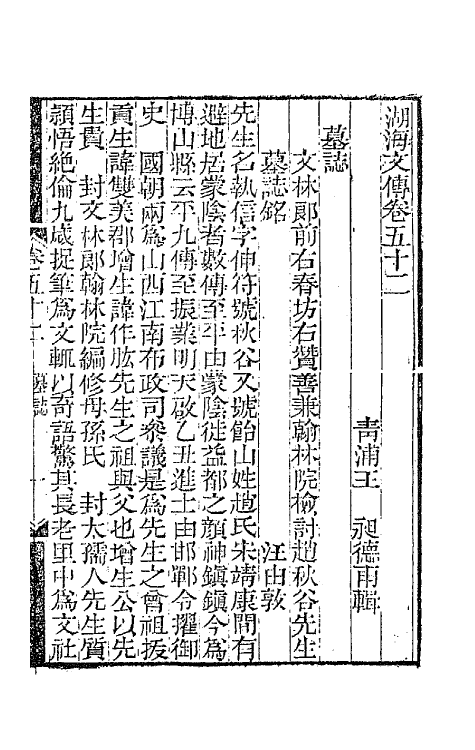 湖海文傳卷五十二
青浦王 昶德甫輯
墓誌
文林郎前右春坊右贊善兼翰林院檢討趙秋谷先生
墓誌銘 汪由敦
先生名執信字伸符號秋谷又號飴山姓趙氏宋靖康間有
避地居蒙陰者數傳至平由蒙陰徙益都之顏神鎮鎮今為
博山縣云平九傳至振業明天啟乙丑進士由邯鄲令擢御
史 國朝兩為山西江南布政司參議是為先生之曾祖拔
貢生諱雙美郡增生諱作肱先生之祖與父也增生公以先
生貴 封文林郎翰林院編修母孫氏 封太孺人先生質
穎悟絕倫九歲捉筆為文輒以奇語驚其長老里中為文社
卷五十二 墓誌 一